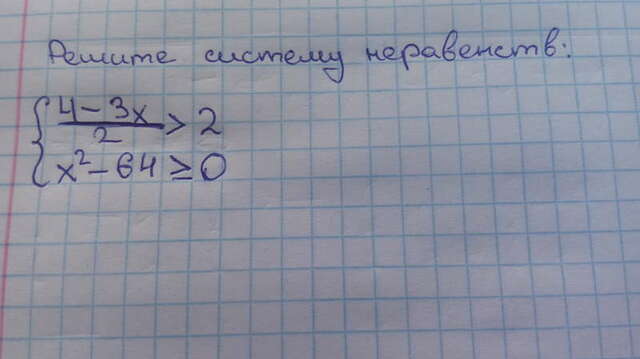 Решите систему неравенств:
{ (4 - 3x)/2 > 2
{ x² - 64 ≥ 0